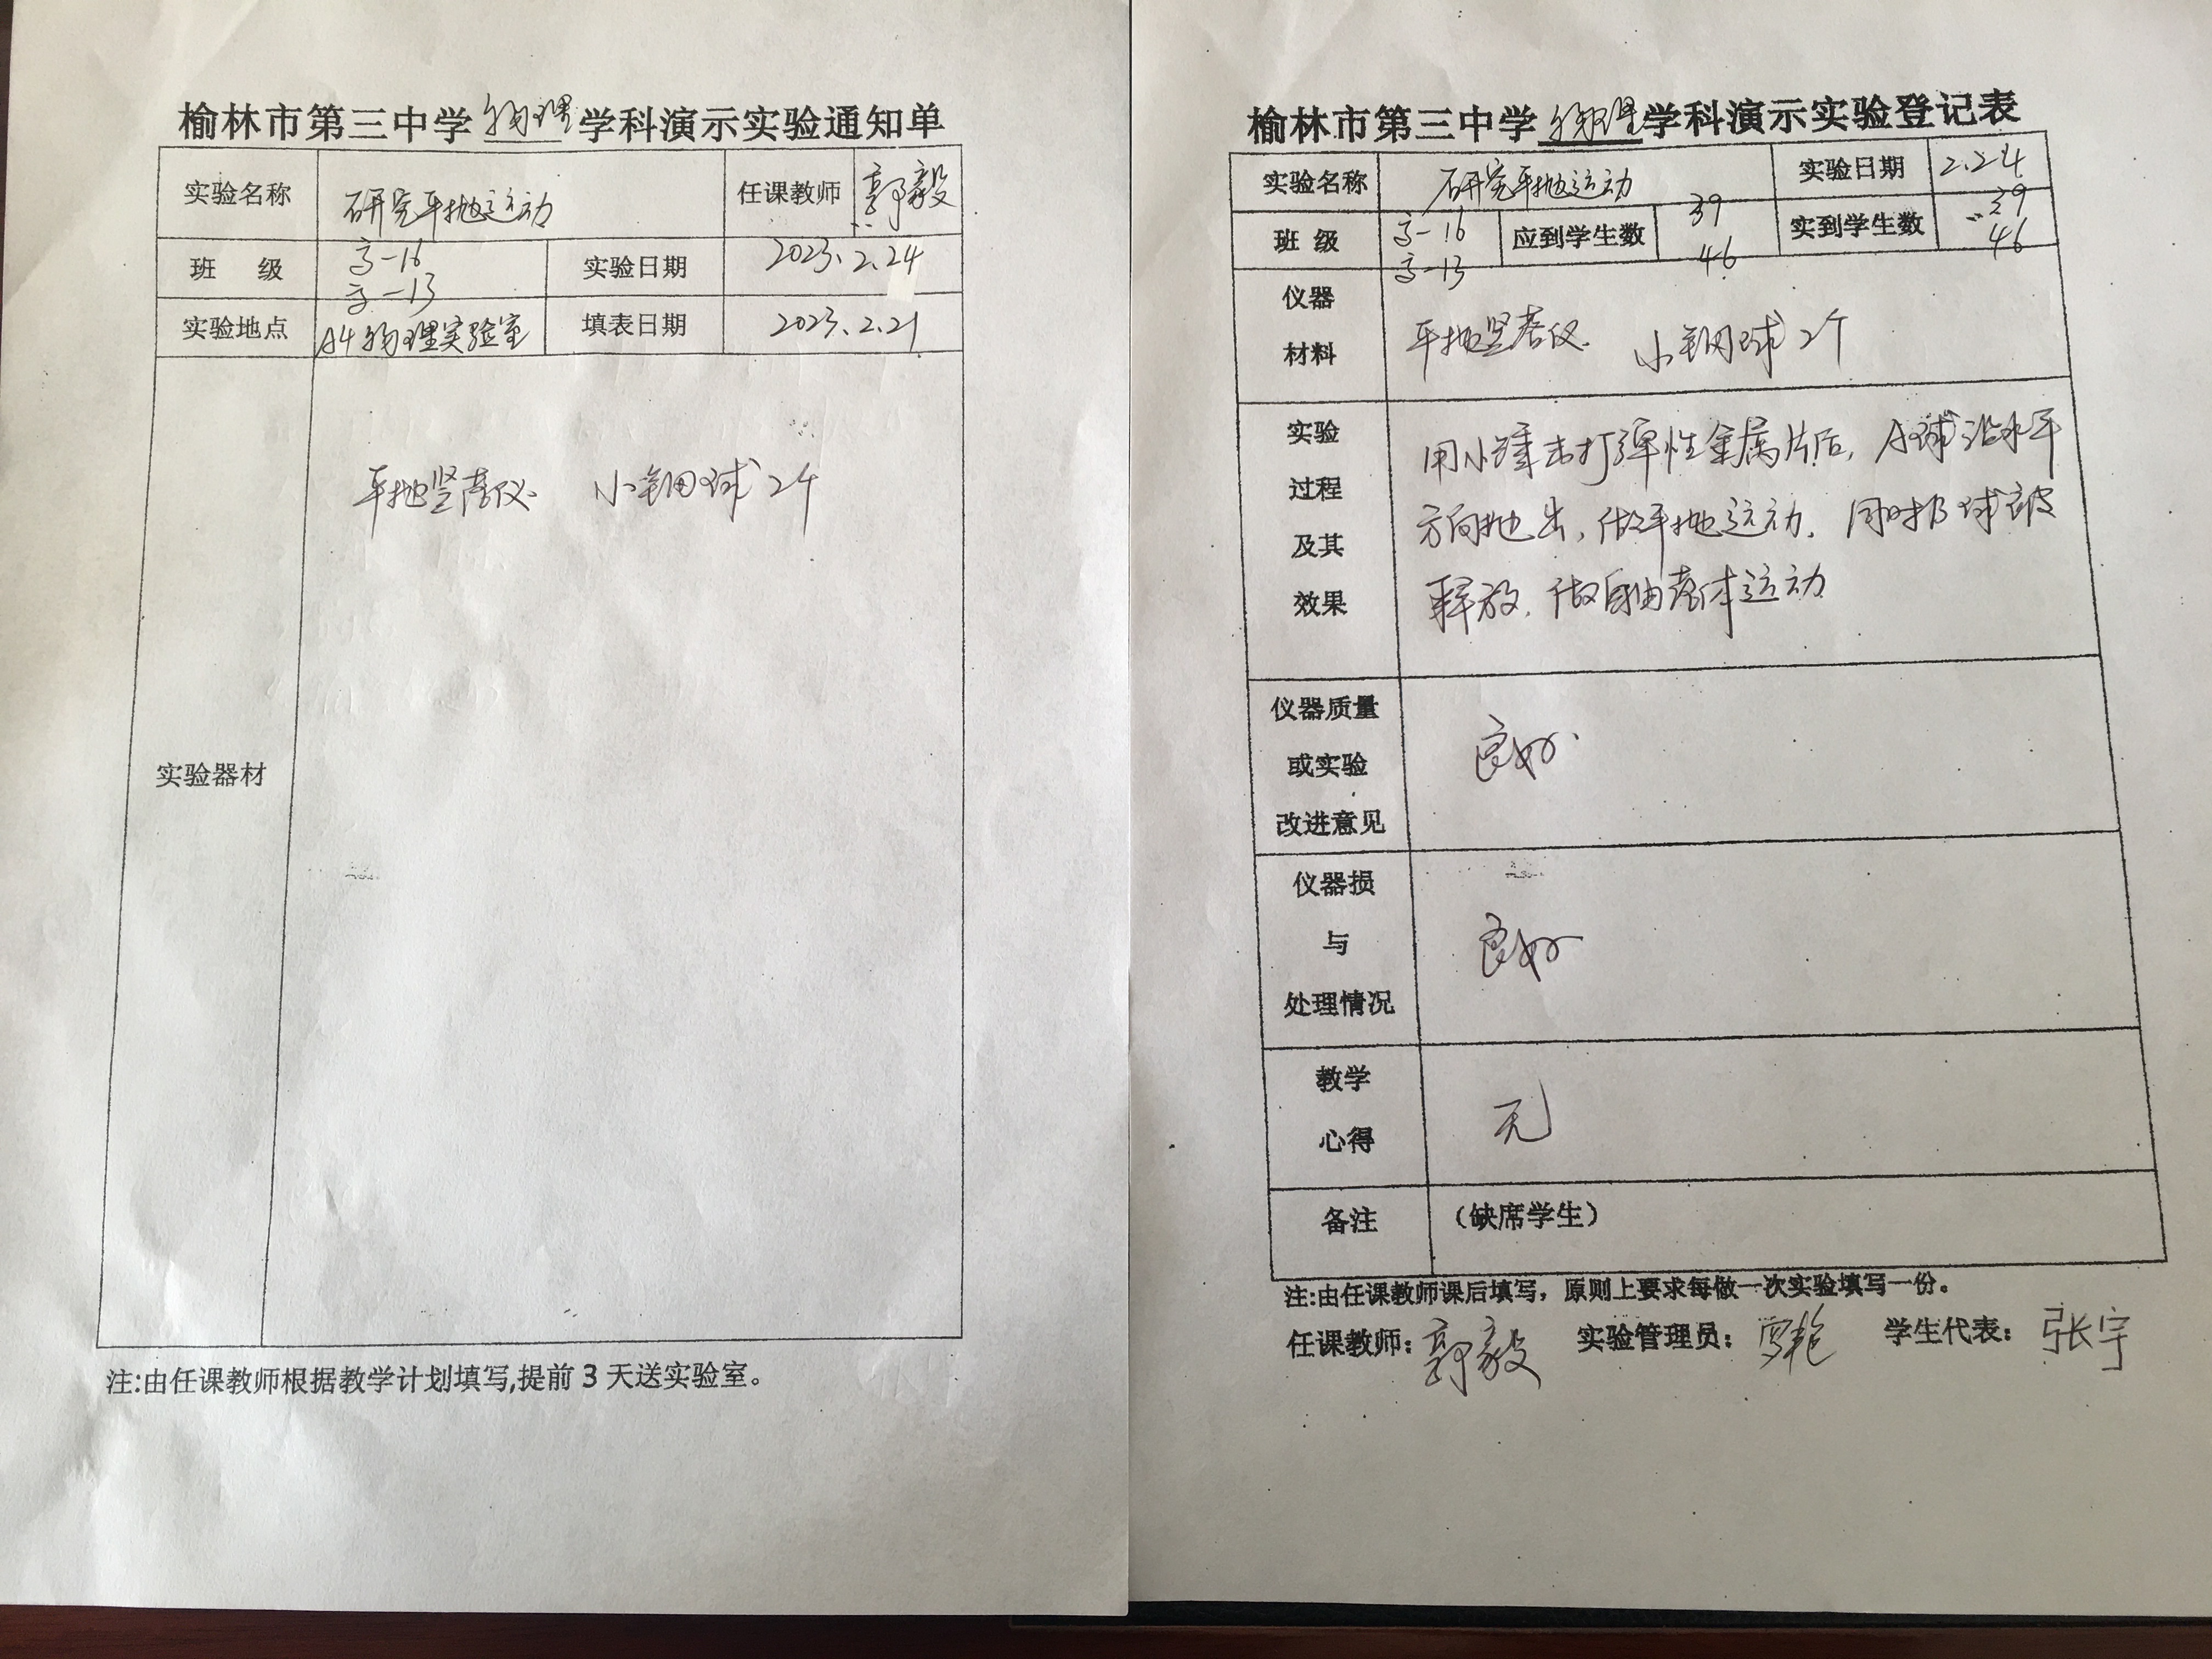 榆林市第三中学 物理 学科演示实验通知单
实验名称 研究平抛运动 任课教师 郭毅
班 级 高一16 高一13 实验日期 2023.2.24
实验地点 A4物理实验室 填表日期 2023.2.21
实验器材 平抛竖落仪. 小钢球2个
注:由任课教师根据教学计划填写,提前3天送实验室。
榆林市第三中学 物理 学科演示实验登记表
实验名称 研究平抛运动 实验日期 2.24
班 级 高一16 高一13 应到学生数 39 46 实到学生数 39 46
仪器
材料
平抛竖落仪. 小钢球2个
实验
过程
及其
效果
用小锤击打弹性金属片后, A球沿水平
方向抛出, 做平抛运动. 同时B球被
释放. 做自由落体运动
仪器质量
或实验
改进意见
良好.
仪器损
与
处理情况
良好
教学
心得
无
备注 (缺席学生)
注:由任课教师课后填写，原则上要求每做一次实验填写一份。
任课教师: 郭毅 实验管理员: 学生代表: 张宇